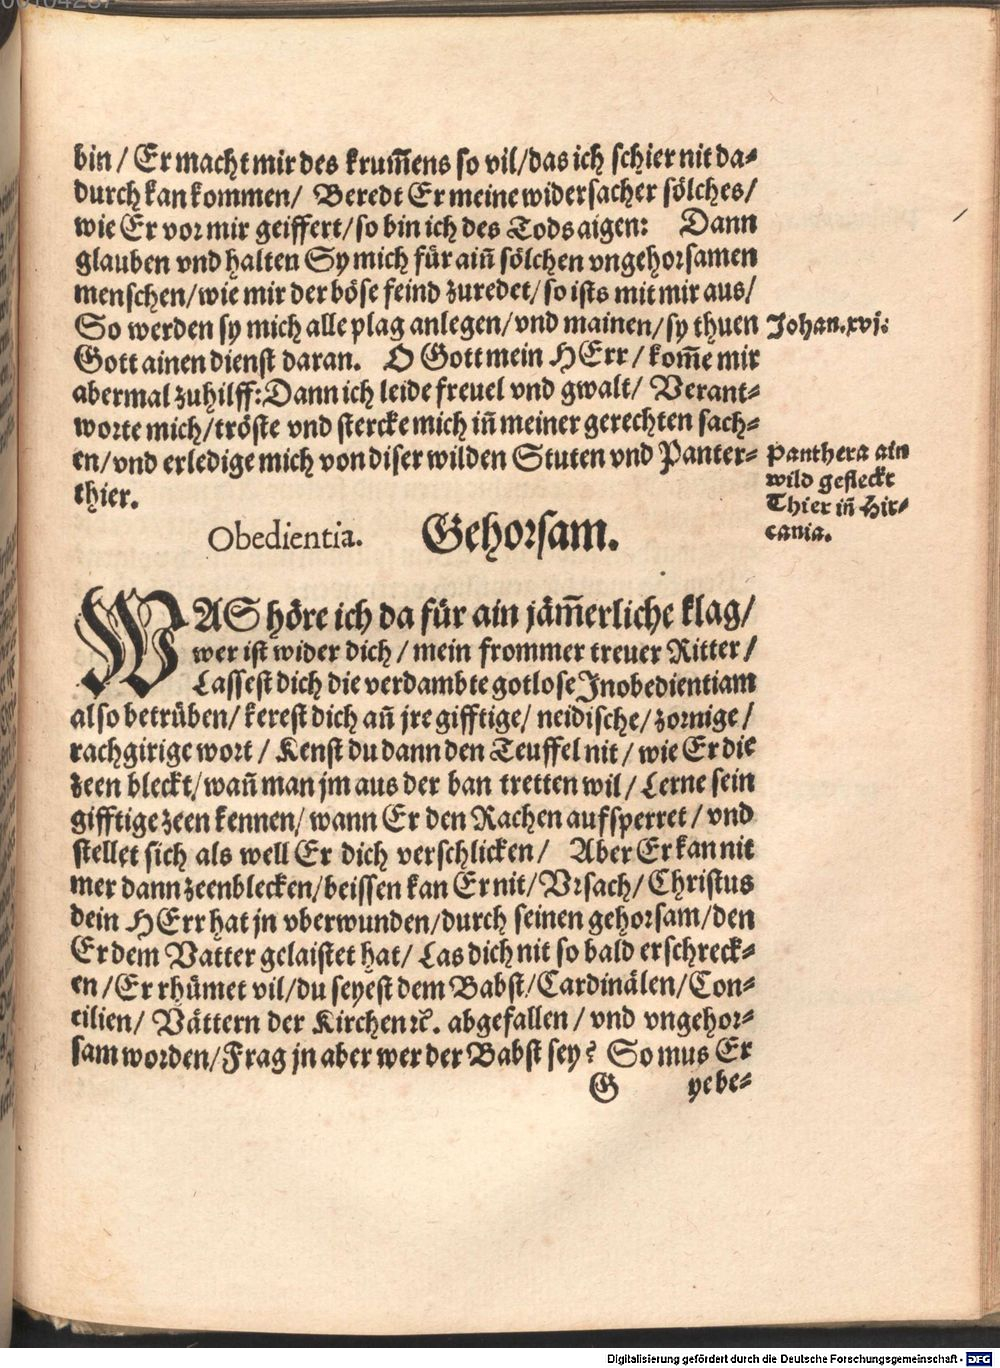 bin / Er macht mir des krum̃ens so vil/das ich schier nit da⸗
durch kan kommen/ Beredt Er meine widersacher sölches/
wie Er vor mir geiffert/so bin ich des Tods aigen: Dann
glauben vnd halten Sy mich für ain̄ sölchen vngehorsamen
menschen/wie mir der böse feind zuredet/so ists mit mir aus/
So werden sy mich alle plag anlegen/vnd mainen/sy thuen
Johan.xvj.
Gott ainen dienst daran. O Gott mein HErr/kom̃e mir
abermal zuhilff:Dann ich leide freuel vnd gwalt/ Verant⸗
worte mich/tröste vnd stercke mich in̄ meiner gerechten sach⸗
en/vnd erledige mich von diser wilden Stuten vnd Panter⸗
thier.
Panthera ain
wild gefleckt
Thier in̄ Hir⸗
cania.
Obedientia. Gehorsam.
WAS höre ich da für ain jäm̃erliche klag/
wer ist wider dich / mein frommer treuer Ritter/
Lassest dich die verdambte gotlose Inobedientiam
also betrüben/kerest dich an̄ jre gifftige/ neidische/zornige/
rachgirige wort / Kenst du dann den Teuffel nit / wie Er die
zeen bleckt/wan̄ man jm aus der ban tretten wil/ Lerne sein
gifftige zeen kennen/wann Er den Rachen aufsperret / vnd
stellet sich als well Er dich verschlicken/ Aber Er kan nit
mer dann zeenblecken/beissen kan Er nit/Vrsach/Christus
dein HErr hat jn vberwunden/durch seinen gehorsam/den
Er dem Vatter gelaistet hat/ Las dich nit so bald erschreck⸗
en/Er rhümet vil/du seyest dem Babst/Cardinälen/Con⸗
cilien/ Vättern der Kirchen ꝛc̃. abgefallen / vnd vngehor⸗
sam worden/Frag jn aber wer der Babst sey? So mus Er
G yebe⸗
Digitalisierung gefördert durch die Deutsche Forschungsgemeinschaft - DFG